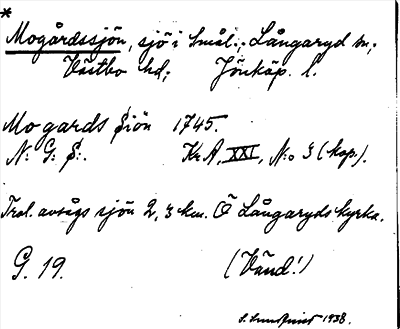 *
Mogårdssjön, sjö i Smål.: Långaryd sn;
Västbo hd; Jönköp. l.
Mogards Siön 1745.
N: G: S:. KrA, XXI, N:o 3 (kop.).
Trol. avságs sjön 2,3 km. Ö Långaryds kyrka.
G. 19. (Vänd!)
S. Lundqvist 1938.